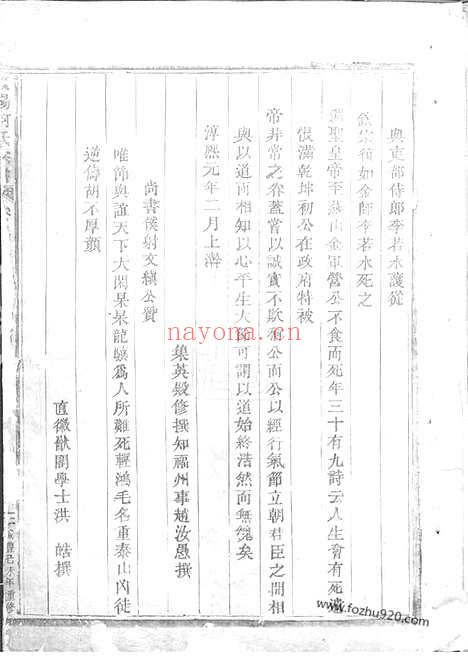 與吏部侍郎李若水護從
欽宗御如金師李若水死之
聖皇帝至燕山金軍營公不食而死年三十有九詩云人生會有死遺
恨滿乾坤初公在政府特被
帝非常之眷蓋嘗以誠實不欺稱公而公以經行氣節立朝君臣之間相
與以道而相知以心平生大節可謂以道始終浩然而無愧矣
淳熙元年二月上澣
集英殿修撰知福州事趙汝愚撰
尚書僕射文縝公贊
唯節與誼天下大閑杲杲龍驤為人所難死輕鴻毛名重泰山凶徒
逆儔胡不厚顏
直徽猷閣學士洪 皓撰
nayona.cn
www.fozhu920.com